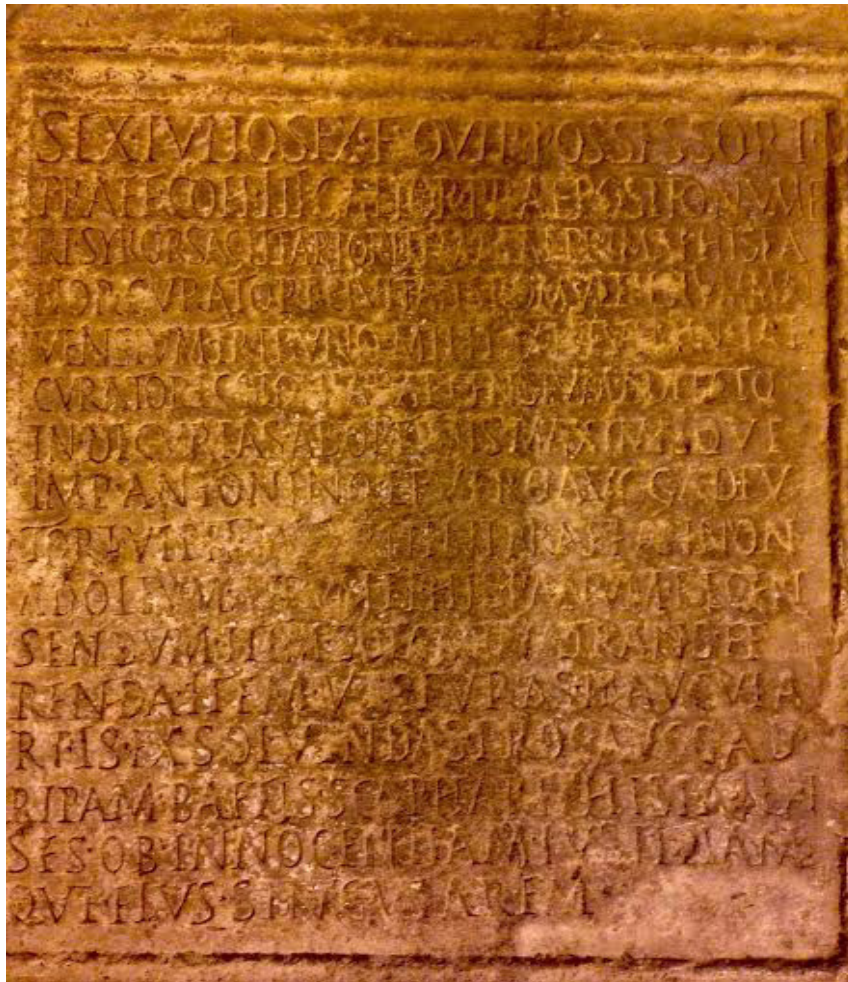 SEX·IVLIO·SEX·F·QVIR·POSSESSORI
PRAEF·COH·III·GALLOR·PRAEPOSITO·NVME
RI·SYROR·SAGITTARIOR·ITEM·ALAE·PRIMAE·HISPA
NOR·CVRATORI·CIVITATIS·ROMVLENSIVM·
VENSIVM·TRIBVNO·MILITVM
CVRATORI·COLONIAE·ARCENSIVM·ADLECTO
IN·DECVRIAS·AB·OPTIMIS·MAXIMISQVE
IMP·ANTONINO·ET·VERO·AVGG·ADIV
TORI·PRAEF·ANNON
AD·OLEVM·AFRVM·ET·HISPANVM·RECEN
SENDVM·ITEM·SOLAMINA·TRANSFE
RENDA·ITEM·VECTVRAS·NAVICVLA
RIIS·EXSOLVENDAS·PROC·AVGG·AD
RIPAM·BAETIS·SCAPHARI·HISPALEN
SES·OB·INNOCENTIAM·IVSTITIAM
QVE·EIVS·SINGVLAREM